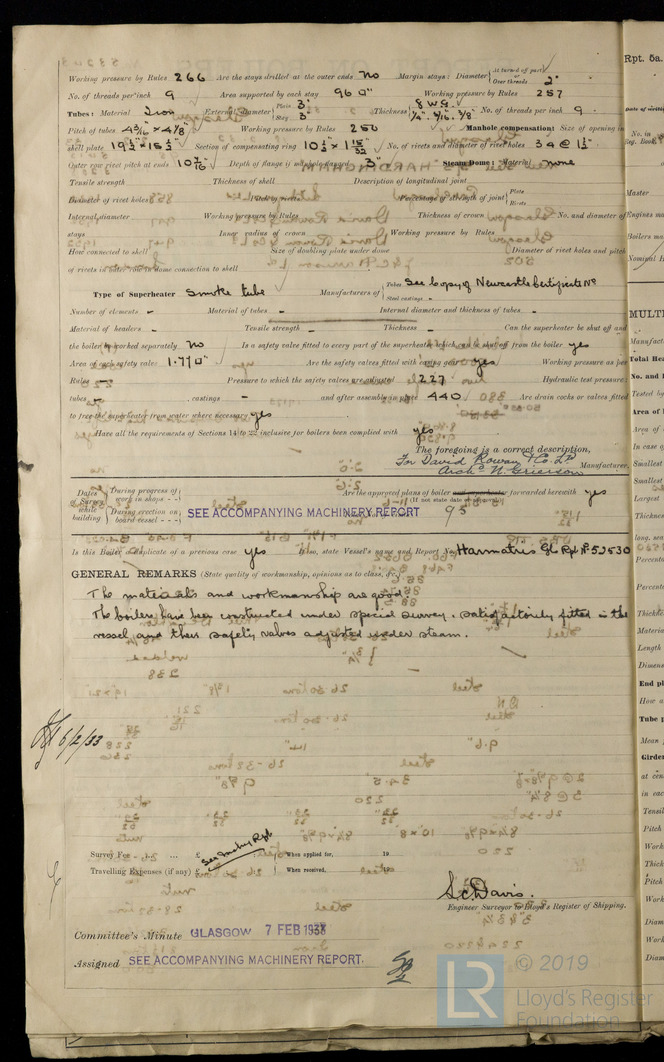 Working pressure by Rules 266 Are the stays drilled at the outer ends No Margin stays: Diameter { At turned off part, or Over threads 2"
No. of threads per inch 9 Area supported by each stay 96.0" Working pressure by Rules 257
Tubes: Material Iron External diameter { Plain 3" Stay 3" Thickness { 8 W.G. 1/4", 5/16", 3/8" No. of threads per inch 9
Pitch of tubes 4 3/16" × 4 1/8" Working pressure by Rules 250 Manhole compensation: Size of opening in
shell plate 19 1/2" × 15 1/2" Section of compensating ring No. of rivets and diameter of rivet holes 34 @ 1 1/2"
Outer row rivet pitch at ends 10 7/16" Depth of flange if manhole flanged 3" Steam Dome: Material none
Tensile strength Thickness of shell Description of longitudinal joint
Diameter of rivet holes Pitch of rivets Percentage of strength of joint { Plate Rivets
Internal diameter Working pressure by Rules Thickness of crown No. and diameter of
stays Inner radius of crown Working pressure by Rules
How connected to shell Size of doubling plate under dome Diameter of rivet holes and pitch
of rivets in outer row in dome connection to shell
Type of Superheater Smoke tube Manufacturers of { Tubes See Copy of Newcastle Certificate No Steel castings -
Number of elements - Material of tubes - Internal diameter and thickness of tubes -
Material of headers - Tensile strength - Thickness - Can the superheater be shut off and
the boiler be worked separately No Is a safety valve fitted to every part of the superheater which can be shut off from the boiler yes
Area of each safety valve 1.770" Are the safety valves fitted with easing gear yes Working pressure as per
Rules - Pressure to which the safety valves are adjusted 227 Hydraulic test pressure:
tubes , castings - and after assembly in place 440 Are drain cocks or valves fitted
to free the superheater from water where necessary yes
Have all the requirements of Sections 14 to 22 inclusive for boilers been complied with yes
The foregoing is a correct description,
For David Rowan & Co. Ld
Archd. N. Grierson Manufacturer.
Dates of Survey while building { During progress of work in shops - - During erection on board vessel - - -
SEE ACCOMPANYING MACHINERY REPORT
Are the approved plans of boiler and superheater forwarded herewith yes
(If not state date of approval.)
95
Is this Boiler a duplicate of a previous case yes If so, state Vessel's name and Report No. Harmatris Gls Rpt No 52530
GENERAL REMARKS (State quality of workmanship, opinions as to class, &c.)
The materials and workmanship are good.
The boilers have been constructed under special survey, satisfactorily fitted in the
vessel and their safety valves adjusted under steam.
6/2/33
Survey Fee ... ... £ : : When applied for, 19
See Mchy Rpt
Travelling Expenses (if any) £ : : When received, 19
S. C. Davis.
Engineer Surveyor to Lloyd's Register of Shipping.
Committee's Minute GLASGOW 7 FEB 1933
Assigned SEE ACCOMPANYING MACHINERY REPORT.
LR © 2019
Lloyd's Register
Foundation
Rpt. 5a.
No. in
Reg. Book
Master
Engines ma
Boilers ma
Nominal H
MULTI
Manufact
Total Hea
No. and
Tested by
Area of
Area of
In case of
Smallest
Smallest
Largest
Thickness
long. sea
Percenta
Percenta
Thickness
Materia
Length
Dimens
End pl
How a
Tube p
Mean p
Girder
at cen
in eac
Tensil
Pitch
Work
Thick
Pitch
Work
Diam
Work
Diam